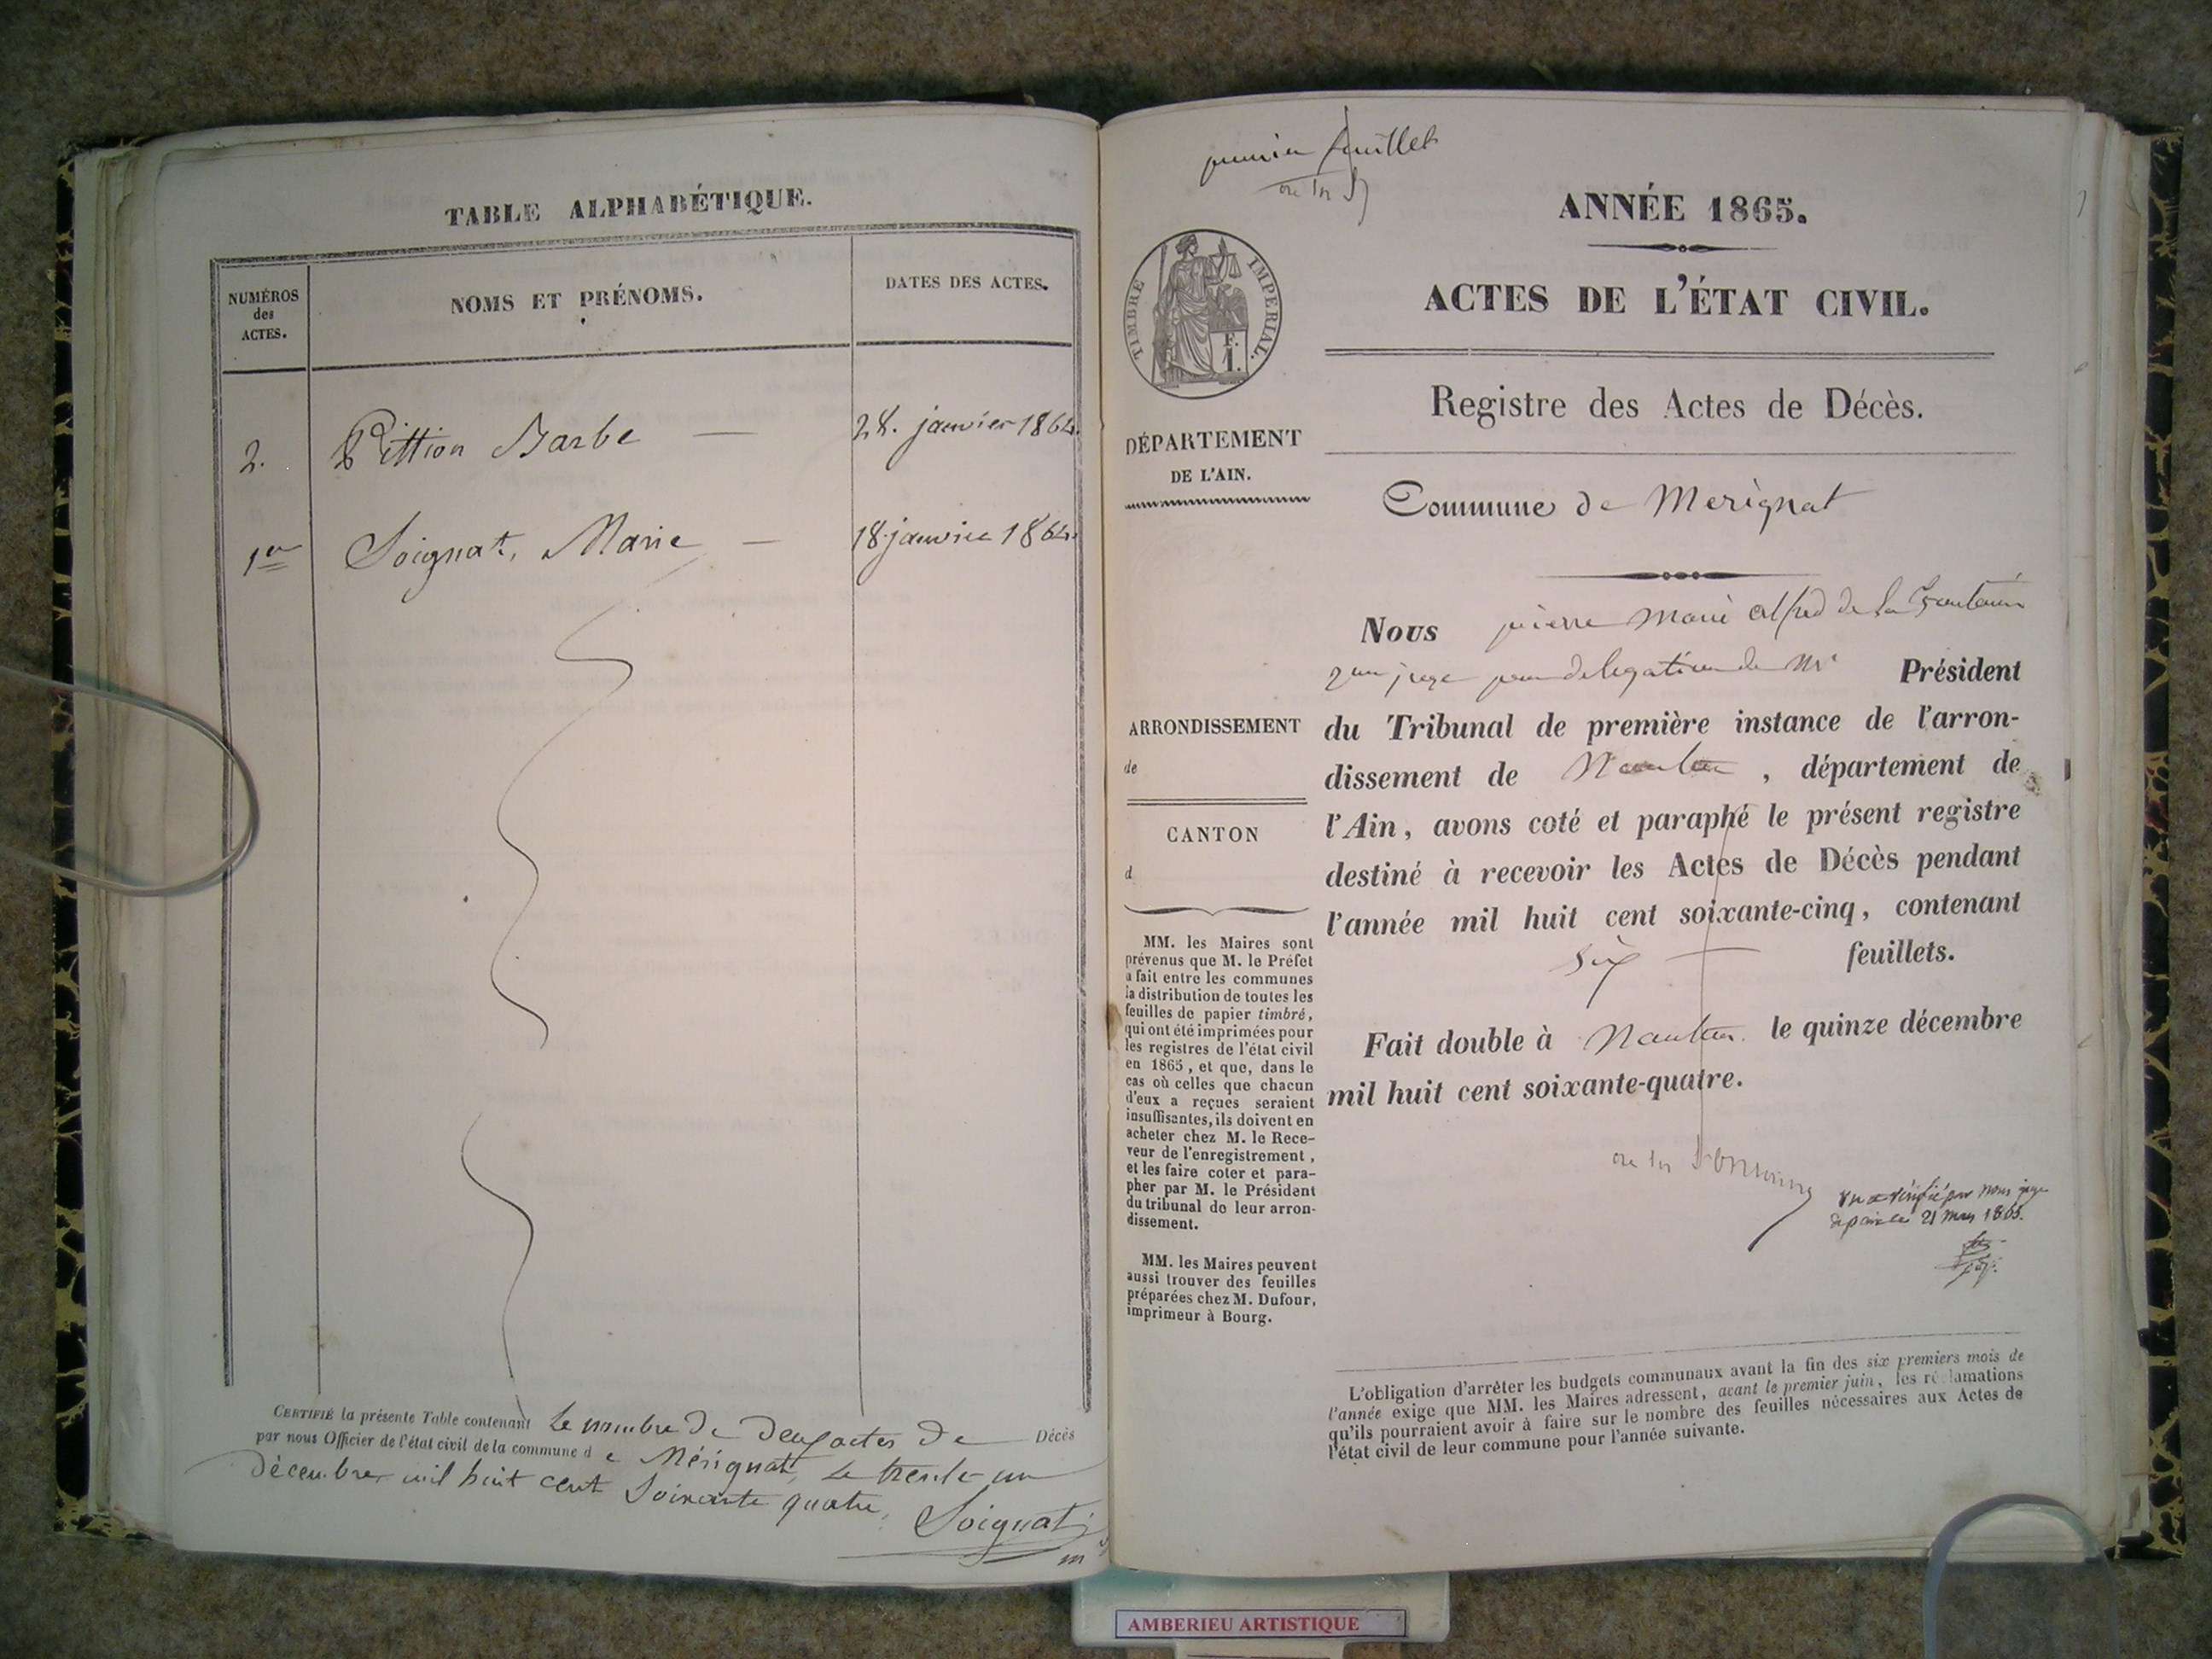 TABLE ALPHABÉTIQUE.
NUMÉROS
des
ACTES.
NOMS ET PRÉNOMS.
DATES DES ACTES.
2. Pittion Barbe — 28. janvier 1864.
1er Soignat, Marie — 18 janvier 1864.
CERTIFIÉ la présente Table contenant le nombre de deux actes de Décès
par nous Officier de l'état civil de la commune de Mérignat, le trente-un
décembre mil huit cent soixante quatre,
Soignat
premier feuillet
TIMBRE IMPERIAL.
F.
1.
DÉPARTEMENT
DE L'AIN.
ARRONDISSEMENT
de
CANTON
d
MM. les Maires sont
prévenus que M. le Préfet
a fait entre les communes
la distribution de toutes les
feuilles de papier timbré,
qui ont été imprimées pour
les registres de l'état civil
en 1865, et que, dans le
cas où celles que chacun
d'eux a reçues seraient
insuffisantes, ils doivent en
acheter chez M. le Rece-
veur de l'enregistrement,
et les faire coter et para-
pher par M. le Président
du tribunal de leur arron-
dissement.
MM. les Maires peuvent
aussi trouver des feuilles
préparées chez M. Dufour,
imprimeur à Bourg.
ANNÉE 1865.
ACTES DE L'ÉTAT CIVIL.
Registre des Actes de Décès.
Commune de Merignat
Nous pierre Marie alfred de la
juge par delegation de Mr Président
du Tribunal de première instance de l'arron-
dissement de Nantua, département de
l'Ain, avons coté et paraphé le présent registre
destiné à recevoir les Actes de Décès pendant
l'année mil huit cent soixante-cinq, contenant
six feuillets.
Fait double à Nantua le quinze décembre
mil huit cent soixante-quatre.
Vu et vérifié par nous juge
de paix le 21 Mars 1865.
L'obligation d'arrêter les budgets communaux avant la fin des six premiers mois de
l'année exige que MM. les Maires adressent, avant le premier juin, les réclamations
qu'ils pourraient avoir à faire sur le nombre des feuilles nécessaires aux Actes de
l'état civil de leur commune pour l'année suivante.
AMBERIEU ARTISTIQUE